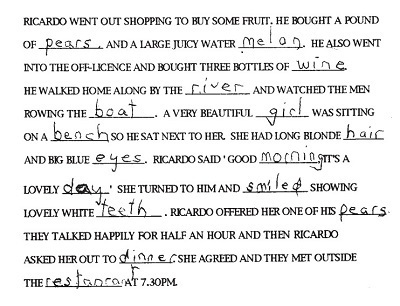 RICARDO WENT OUT SHOPPING TO BUY SOME FRUIT. HE BOUGHT A POUND
OF pears. AND A LARGE JUICY WATER melon. HE ALSO WENT
INTO THE OFF-LICENCE AND BOUGHT THREE BOTTLES OF wine.
HE WALKED HOME ALONG BY THE river AND WATCHED THE MEN
ROWING THE boat. A VERY BEAUTIFUL girl WAS SITTING
ON A bench SO HE SAT NEXT TO HER. SHE HAD LONG BLONDE hair
AND BIG BLUE eyes. RICARDO SAID 'GOOD morning IT'S A
LOVELY day.' SHE TURNED TO HIM AND smiled SHOWING
LOVELY WHITE teeth. RICARDO OFFERED HER ONE OF HIS pears.
THEY TALKED HAPPILY FOR HALF AN HOUR AND THEN RICARDO
ASKED HER OUT TO dinner. SHE AGREED AND THEY MET OUTSIDE
THE restanrat AT 7.30PM.